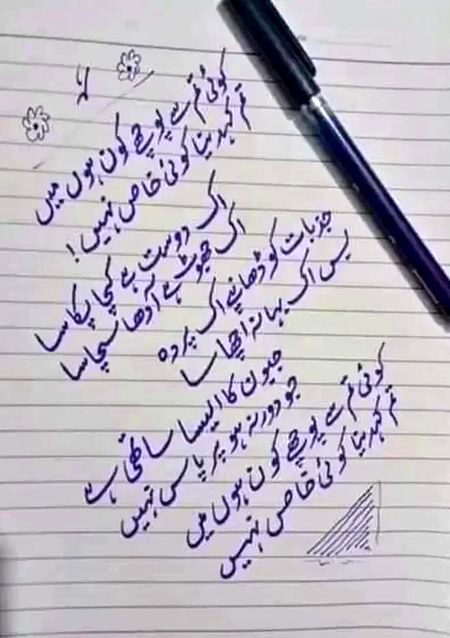 کوئی تم سے پوچھے کون ہوں میں
تم کہہ دینا کوئی خاص نہیں !
اک دوست ہے کچا پکا سا
اک جھوٹ ہے آدھا سچا سا
جذبات کو ڈھانپے اک پردہ
بس اک بہانہ اچھا سا
جیون کا ایسا ساتھی ہے
جو دور نہ ہو پر پاس نہیں
کوئی تم سے پوچھے کون ہوں میں
تم کہہ دینا کوئی خاص نہیں